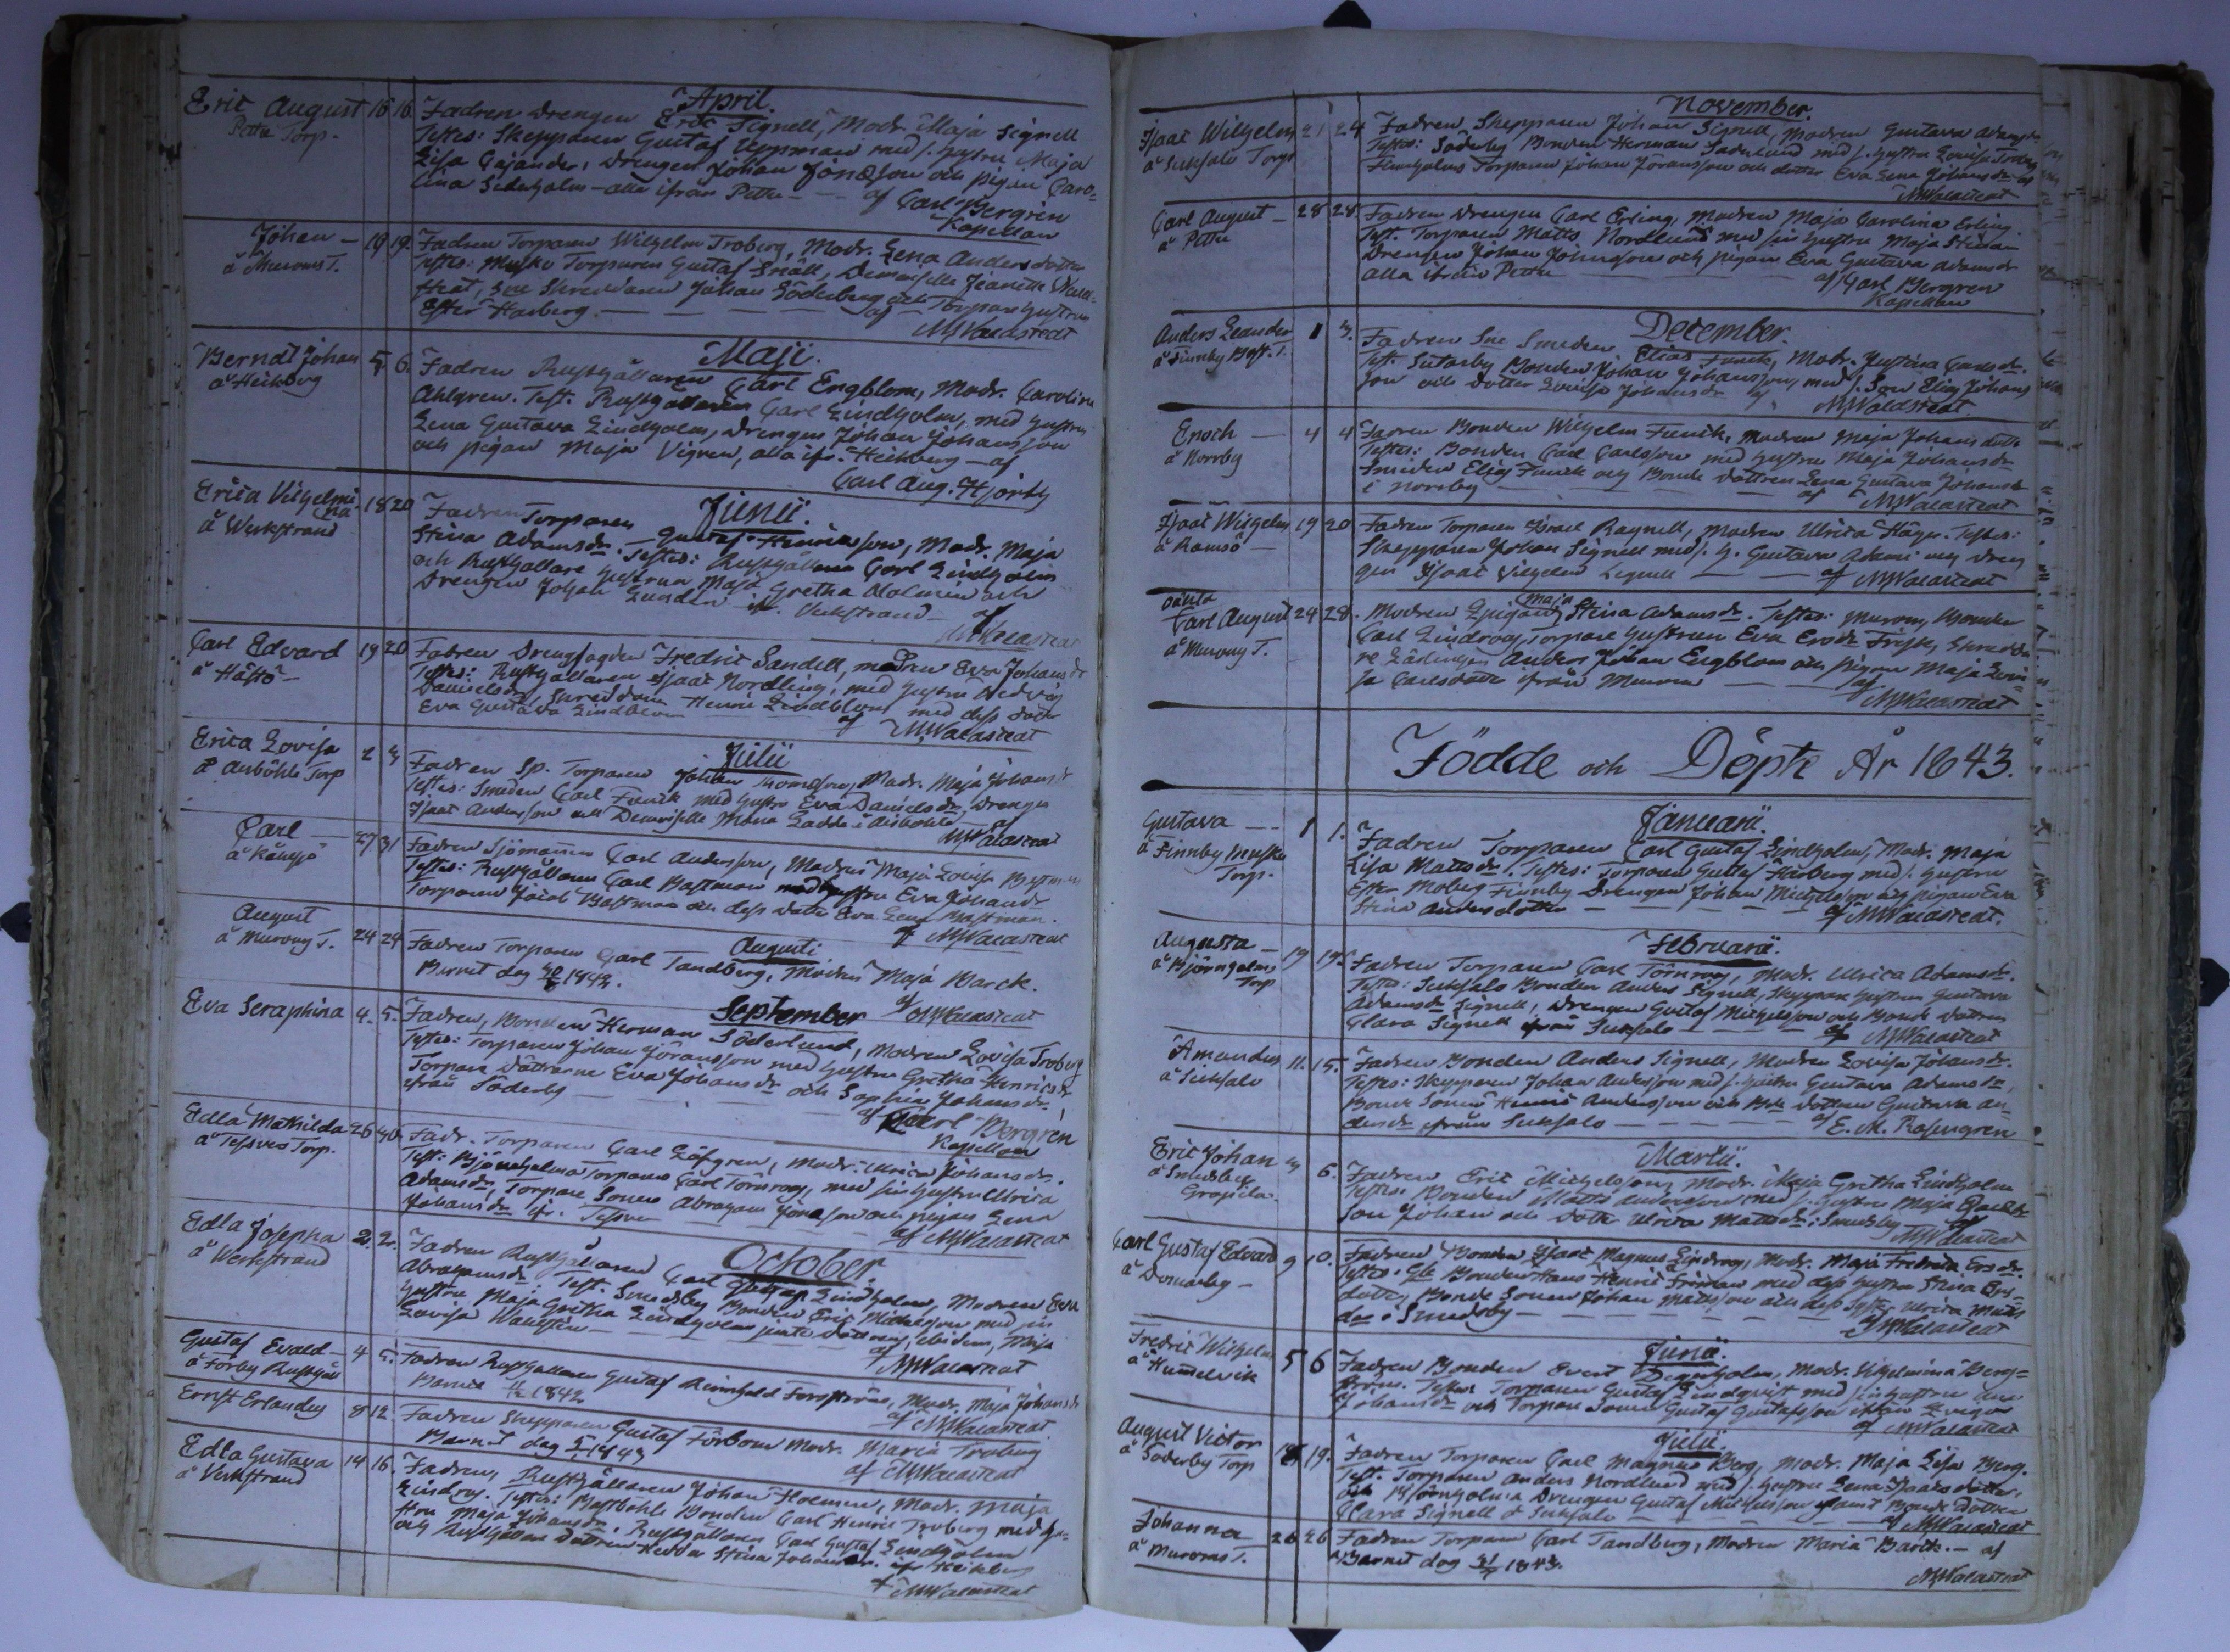 April.
Eric August 16 16. Fadren Drengen Eric Signell, Modr. Maja Signell
Pettu Torp. Testes: Skepparen Gustaf med s. hustru Maja
Lisa Cajander, Drengen Johan Jonasson och pigan Caro=
lina Sederholm - alla ifrån Pettu - af Carl Bergrén
Kapellan
Johan - 19 19. Fadren Torparen Wilhelm Troberg, Modr. Lena Andersdotter
å Murons T. Testes: Torparen Gustaf Snäll, Demoiselle Jeanette
Skreddaren Johan Söderberg och Torpare hustrun
Ester Harberg. af
MWalastedt
Maji.
Berndt Johan 5. 6. Fadren Rusthållaren Carl Engblom, Modr. Carolina
å Heikberg Ahlgren. Test. Rusthållaren Carl Lindholm, med hustru
Lena Gustava Lindholm, Drengen Johan Johansson
och pigan Maja Vigren, alla ifr. Heikberg - af
Carl Aug. Hjorth
Junii.
Erica Vilhelmi-na 18 20 Fadren Torparen Gustaf Henricsson, Modr. Maja
å Werkstrand Stina Adamsdr. Testes: Rusthållaren Carl Lindholm
och Rusthållare hustrun Maja Gretha Holmén och
Drengen Johan Lunden Verkstrand - af
MWalastedt
Carl Edvard 19 20 Fadren Drengfogden Fredric Sandell, modren Eva Johansdr
å Hästö - Testes: Rusthållaren Isaac Nordling, med hustru Hedvig
Danielsdr, Henric Lindblom med dess dotter
Eva Gustava Lindblom af MWalastedt
Julii
Erica Lovisa 2 3 Fadren Sp. Torparen Johan Thomasson, Modr. Maja Johansdr
Torp Testes: Smeden Carl Funik med hustru Eva Danielsdr, Drengen
Isaac Andersson och Demoiselle Mona Ladda i af
MWalastedt
Carl - 27 31 Fadren Sjömannen Carl Andersson, Modren Maja Lovisa
Testes: Rusthållaren Carl Bastman med hustru Eva Johansdr
Torparen Jacob Bastman och dess dotter Eva Lena Bastman.
af MWalastedt
Augusti
August 24 24 Fadren Torparen Carl Tandberg, Modren Maja Barck.
å Murons T. Barnet dog 1843. af MWalastedt
September
Eva Seraphina 4. 5. Fadren, Bonden Herman Söderlund, Modren Lovisa Troberg
Testes: Torparen Johan Jöransson med hustru Gretha Henricsdr
Torpare Döttrarne Eva Johansdr och Sophia Johansdr
ifrån Söderby af Carl Bergrén
Kapellan
Edla Mathilda 26 30. Fadr. Torparen Carl Löfgren, Modr. Ulrica Johansdr.
å Tessves Torp. Test: Björnholms Torparen Carl Törnroos, med sin hustru Ulrica
Adamsdr, Torpare Sonen Abraham Jonasson och pigan Lena
Johansdr ifr. af MWalastedt
October
Edla Josepha 2. 2. Fadren Rusthållaren Carl Gustaf Lindholm, Modren Eva
å Werkstrand Abrahamsdr. Test. Smedsby Bonden Eric Michelsson med sin
hustru Maja Gretha Lindholm jemte Maja
Lovisa af MWalastedt
Gustaf Evald - 4 5. Fadren Rusthållaren Gustaf Reinhold Forsström, Modr. Maja Johansdr
å Förby Rusthåll Barnet 1842 af MWalastedt
Ernst Erlandus 8 12 Fadren Skepparen Gustaf Förbom Modr. Maria Troberg
Barnet dog 1843 af MWalastedt
Edla Gustava 14 16. Fadren, Rusthållaren Johan Holmén, Modr. Maja
å Verkstrand Lindroos. Testes: Bastböhle Bonden Carl Henric Troberg med hu=
stru Maja Johansdr. Rusthållaren Carl Gustaf Lindholm
och Rusthållare Dottren Hedda Stina Johansdr. ifr. Heikberg
af MWalastedt
November.
Isaac Wilhelm 21 24 Fadren Skepparen Johan Signell, Modren Gustava Adamsdr
å Suksalo Torp Testes: Söderby Bonden Herman Söderlund med s. hustru Lovisa Troberg
Torparen Johan Jöransson och dotter Eva Lena Johansdr af
MWalastedt
Carl August - 28 28. Fadren Drengen Carl Erling, Modren Maja Carolina Erling.
å Pettu Test. Torparen Matts Nordlund med sin hustru Maja Stina
Drengen Johan Johnsson och pigan Eva Gustava Adamsdr
alla ifrån Pettu af Carl Bergren
Kapellan
December.
Anders Leander 1 3. Fadren Smeden Elias Funck, Modr. Justina Carlsdr.
å Finnby T. Test. Sutarby Bonden Johan Johansson, med s. Son Elias Johans
son och dotter Lovisa Johansdr af MWaldstedt.
Enoch - 4 4 Fadren Bonden Wilhelm Funck, Modren Maja Johansdotter
å Norrby Testes: Bonden Carl Carlsson med hustru Maja Johansdr
Smeden Elias Funck och Bonde dottren Lena Gustava Johansdr
i Norrby af MWalastedt
Isaac Wilhelm 19 20 Fadren Torparen Israel Ragnell, Modren Ulrica Häger. Testes:
å Ramsö - Skepparen Johan Signell med s. h. Gustava Adami och Dren
gen Isaac Vilhelm Signell af MWalastedt
oäkta
Carl August 24 28. Modren pigan Maja Stina Adamsdr. Testes: Murons Bonden
å Murons T. Carl Lindroos, Torpare hustrun Eva Ersdr Frisk, Skredda
re Lärlingen Anders Johan Engblom och pigan Maja Lovi
sa Carlsdotter ifrån Murom af
MWalastedt
Födde och Döpte År 1843.
Januarii.
Gustava - 1 1. Fadren Torparen Carl Gustaf Lindholm, Modr. Maja
å Finnby Torp. Lisa Mattsdr. Testes: Torparen Gustaf Harberg med s. hustru
Ester Moberg Finnby Drengen Johan Michelsson och pigan Eva
Stina Andersdotter af MWalastedt.
Februarii.
Augusta - 19 19. Fadren Torparen Carl Törnroos, Modr. Ulrica Adamsdr.
å Björnholms Torp Testes: Suksalo Bonden Anders Signell, Skeppare hustrun Gustava
Adamsdr Signell, Drengen Gustaf Michelsson och Bonde dottren
Clara Signell ifrån Suksalo af MWalastedt
Amandus 11. 15. Fadren Bonden Anders Signell, Modren Lovisa Johansdr.
å Suksalo Testes: Skepparen Johan Andersson med s. hustru Gustava Adamsdr,
Bonde Sonen Henric Andersson och Bde dottren Gustava An
dersdr ifrån Suksalo af E. M. Rosengren
Martii.
Eric Johan 3 6. Fadren Eric Michelsson, Modr. Maja Gretha Lindholm
å Smedsby Testes. Bonden Matts Andersson med s. hustru Maja
Son Johan och dotter Ulrica Mattsdr: i Smedsby af MWalastedt
Carl Gustaf Edvard 9 10. Fadren Bonden Isaac Magnus Lindroos, Modr. Maja Fredrica Ersdr.
å Domarby - Testes: Bonden Hans Henric med dess hustru Stina Ers-
dotter, Bonde Sonen Johan Mattsson och dess syster Ulrica Matts
dr i Smedsby af MWalastedt
Junii.
Fredric Wilhelm 5 6 Fadren Bonden Evert Degerholm, Modr. Vilhelmina Berg=
ström. Testes: Torparen Gustaf Lindqvist med sin hustru
Johansdr och Torpare Sonen Gustaf Gustafsson ifrån
af MWalastedt
Julii.
August Victor 18 19. Fadren Torparen Carl Magnus Berg, Modr. Maja Lisa Berg.
å Söderby Torp Test. Torparen Anders Nordlund med s. hustru Lena Isaacsdotter,
och Björnholms Drengen Gustaf Michelsson samt Bonde dottren
Clara Signell å Suksalo af MWalastedt
Johanna 26 26 Fadren Torparen Carl Tandberg, Modren Maria Barck. - af
å Murons T. Barnet dog 1843. MWalastedt